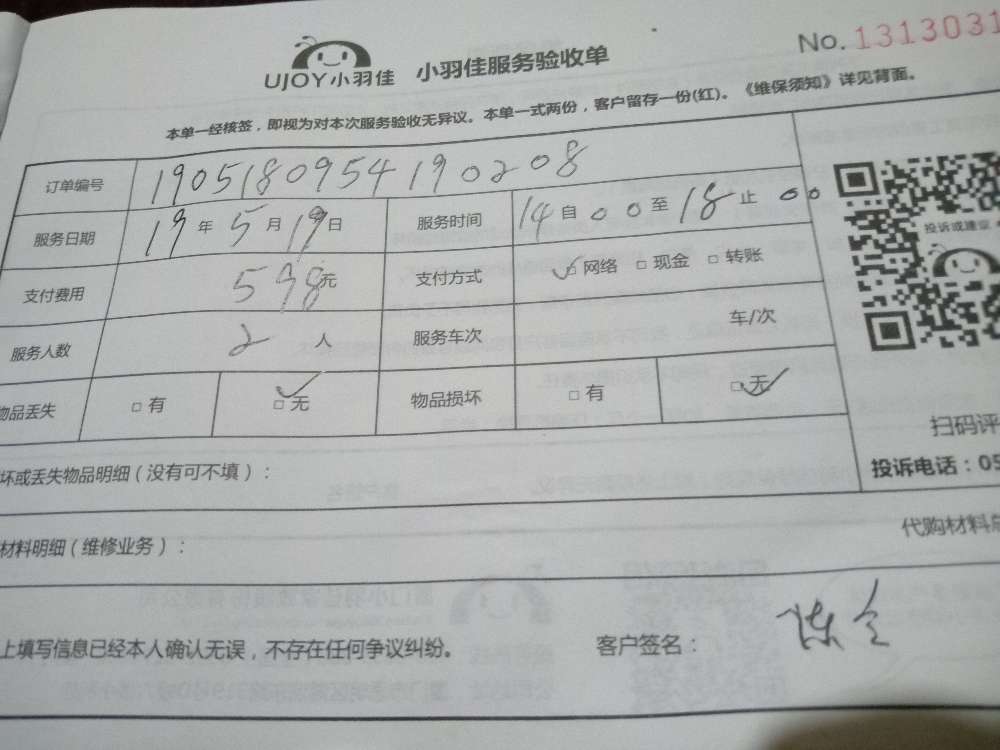 UJOY小羽佳 小羽佳服务验收单 No. 1313031
本单一经核签，即视为对本次服务验收无异议。本单一式两份，客户留存一份(红)。《维保须知》详见背面。
订单编号 190518095419 0208
服务日期 19年5月19日 服务时间 14自00至18止00
投诉或建议
支付费用 598元 支付方式 ☑网络 □现金 □转账
服务人数 2人 服务车次 车/次
物品丢失 □有 ☑无 物品损坏 □有 ☑无
扫码评
坏或丢失物品明细（没有可不填）：
投诉电话：05
材料明细（维修业务）：
代购材料总
上填写信息已经本人确认无误，不存在任何争议纠纷。 客户签名：